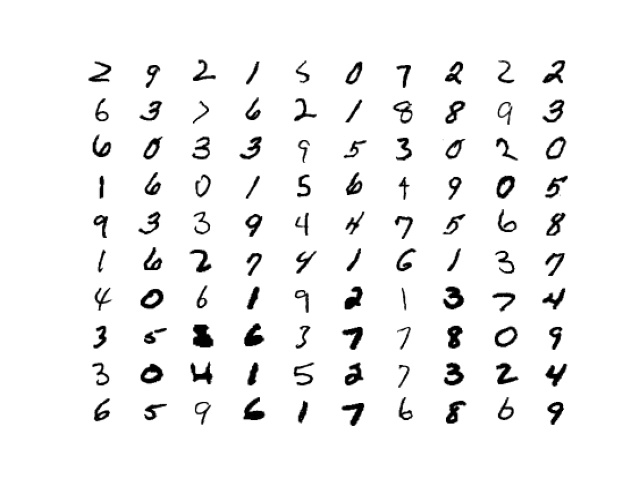 2 9 2 1 5 0 7 2 2 2
6 3 7 6 2 1 8 8 9 3
6 0 3 3 9 5 3 0 2 0
1 6 0 1 5 6 4 9 0 5
9 3 3 9 4 4 7 5 6 8
1 6 2 7 4 1 6 1 3 7
4 0 6 1 9 2 1 3 7 4
3 5 8 6 3 7 7 8 0 9
3 0 4 1 5 2 7 3 2 4
6 5 9 6 1 7 6 8 6 9